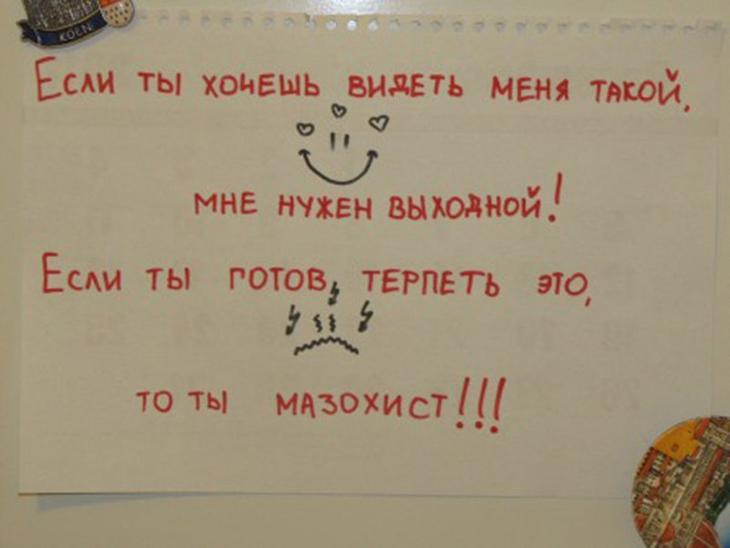 KÖLN
Если ты хочешь видеть меня такой,
мне нужен выходной!
Если ты готов, терпеть это,
то ты мазохист!!!